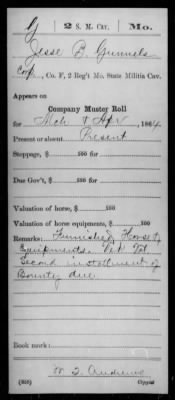 G 2 S. M. Cav. Mo.
Jesse B. Gunnels
Corp., Co. F, 2 Reg't Mo. State Militia Cav.
Appears on
Company Muster Roll
for Mch & Apr, 1864
Present or absent Present
Stoppage, $ 100 for
Due Gov't, $ 100 for
Valuation of horse, $ 100
Valuation of horse equipments, $ 100
Remarks: Furnished Horse &
Equipments. Vet Vol
Second installment of
Bounty due
Book mark:
(858) Copyist